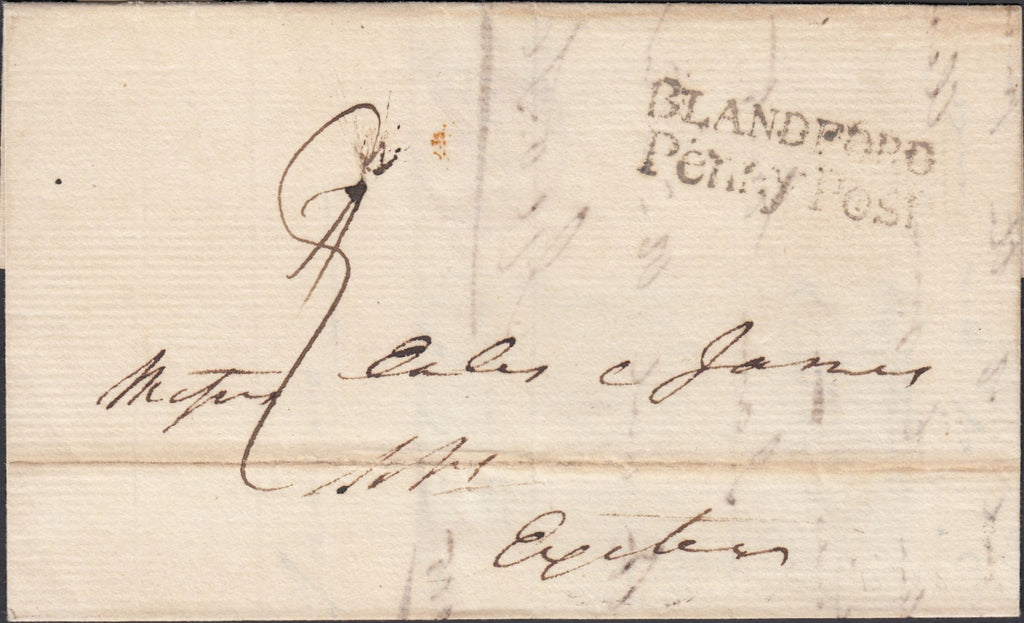 BLANDFORD
Penny Post
Messrs Eales & James
Exeter